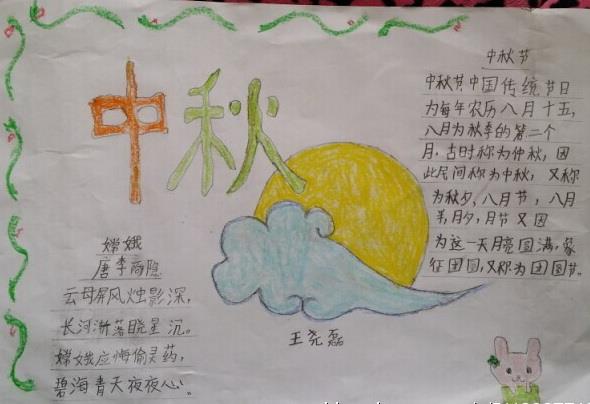 中秋
中秋节
中秋节中国传统节日
为每年农历八月十五，
八月为秋季的第二个
月，古时称为仲秋，因
此民间称为中秋，又称
为秋夕，八月节，八月
半，月夕，月节又因
为这一天月亮圆满，象
征团圆，又称为团圆节。
嫦娥
唐李商隐
云母屏风烛影深，
长河渐落晓星沉。
嫦娥应悔偷灵药，
碧海青天夜夜心。
王尧磊